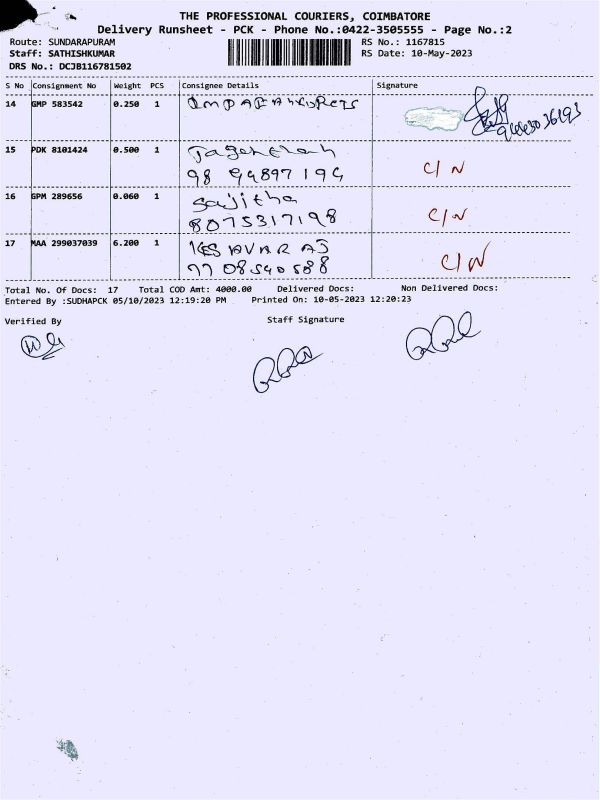 THE PROFESSIONAL COURIERS, COIMBATORE
Delivery Runsheet - PCK - Phone No.:0422-3505555 - Page No.:2
Route: SUNDARAPURAM RS No.: 1167815
Staff: SATHISHKUMAR RS Date: 10-May-2023
DRS No.: DCJB116781502
S No Consignment No Weight PCS Consignee Details Signature
14 GMP 583542 0.250 1
15 PDK 8101424 0.500 1
98 94897194 C/N
16 GPM 289656 0.060 1 Sajitha
8075317198 C/N
17 MAA 299037039 6.200 1 KESAVARAJ
7708540588 C/N
Total No. Of Docs: 17 Total COD Amt: 4000.00 Delivered Docs: Non Delivered Docs:
Entered By :SUDHAPCK 05/10/2023 12:19:20 PM Printed On: 10-05-2023 12:20:23
Verified By Staff Signature